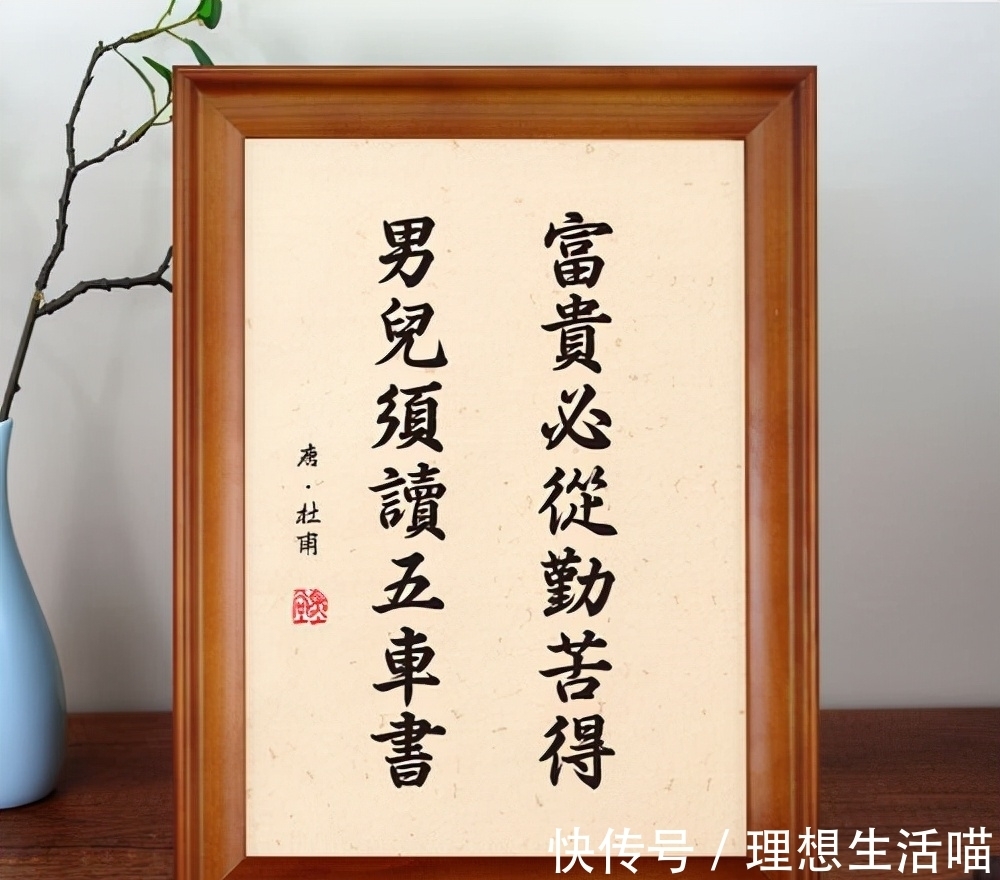 富貴必從勤苦得
男兒須讀五車書
唐·杜甫
快传号/理想生活喵